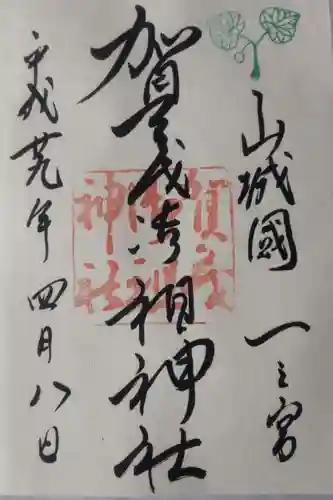 山城國 一之宮
賀茂御祖神社
平成廿九年 四月八日
賀茂
御祖
神社